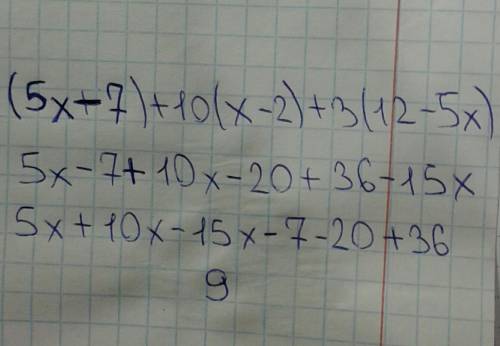 (5x-7)+10(x-2)+3(12-5x)
5x-7+10x-20+36-15x
5x+10x-15x-7-20+36
9